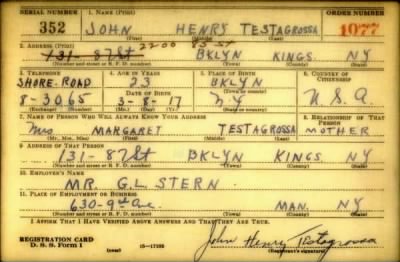 SERIAL NUMBER 1. NAME (Print) ORDER NUMBER
352 JOHN HENRY TESTAGROSSA 1077
(First) (Middle) (Last)
2. ADDRESS (Print) 2200 85 ST
131- 87 St BKLYN KINGS NY
(Number and street or R. F. D. number) (Town) (County) (State)
3. TELEPHONE 4. AGE IN YEARS 5. PLACE OF BIRTH 6. COUNTRY OF CITIZENSHIP
SHORE-ROAD 23 BKLYN
DATE OF BIRTH (Town or county)
8-3065 3-8-17 NY U.S.A.
(Exchange) (Number) (Mo.) (Day) (Yr.) (State or country)
7. NAME OF PERSON WHO WILL ALWAYS KNOW YOUR ADDRESS 8. RELATIONSHIP OF THAT PERSON
Mrs MARGARET TESTAGROSSA MOTHER
(Mr., Mrs., Miss) (First) (Middle) (Last)
9. ADDRESS OF THAT PERSON
131-87 St BKLYN KINGS NY
(Number and street or R. F. D. number) (Town) (County) (State)
10. EMPLOYER'S NAME
MR. G.L. STERN
11. PLACE OF EMPLOYMENT OR BUSINESS
630-9th Ave MAN. NY
(Number and street or R. F. D. number) (Town) (County) (State)
I AFFIRM THAT I HAVE VERIFIED ABOVE ANSWERS AND THAT THEY ARE TRUE.
REGISTRATION CARD
D. S. S. FORM 1 (over) 16-17105 John Henry Testagrossa
(Registrant's signature)